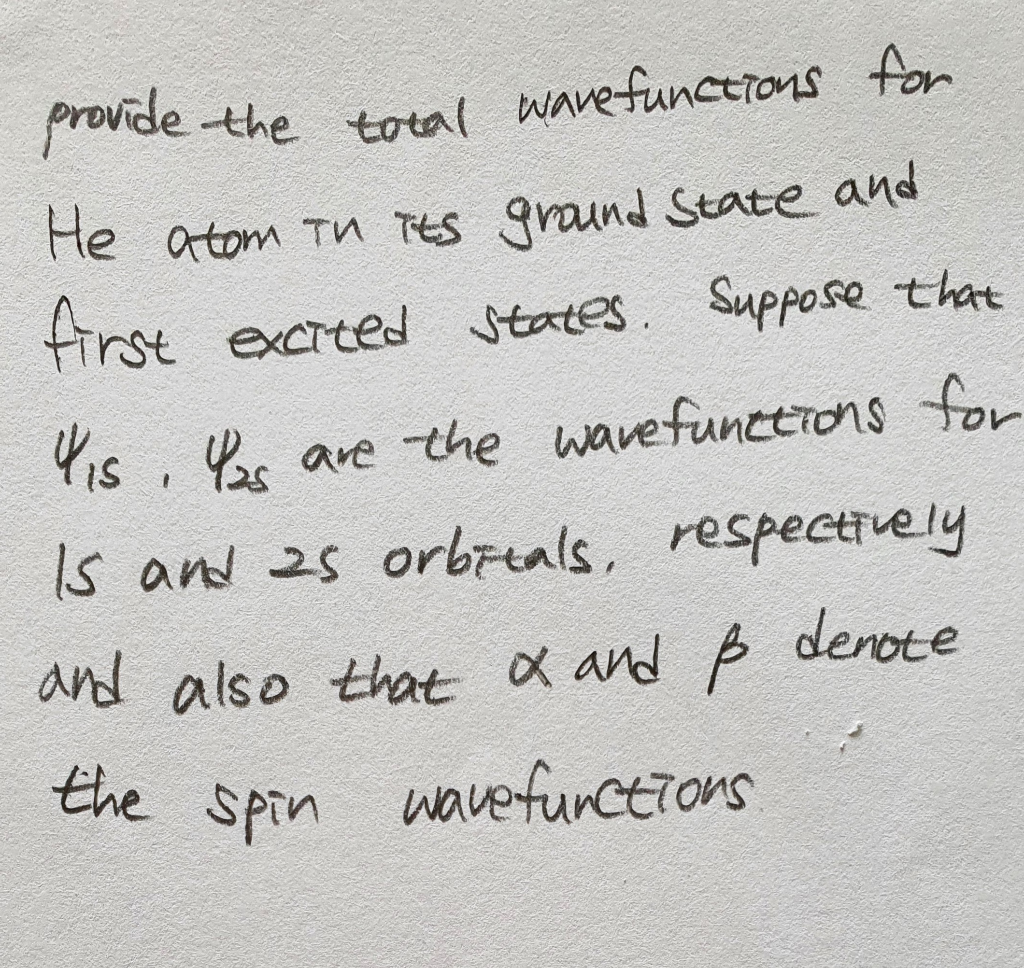 provide the total wavefunctions for
He atom in its ground state and
first excited states. Suppose that
Ψ1s, Ψ2s are the wavefunctions for
1s and 2s orbitals, respectively
and also that α and β denote
the spin wavefunctions